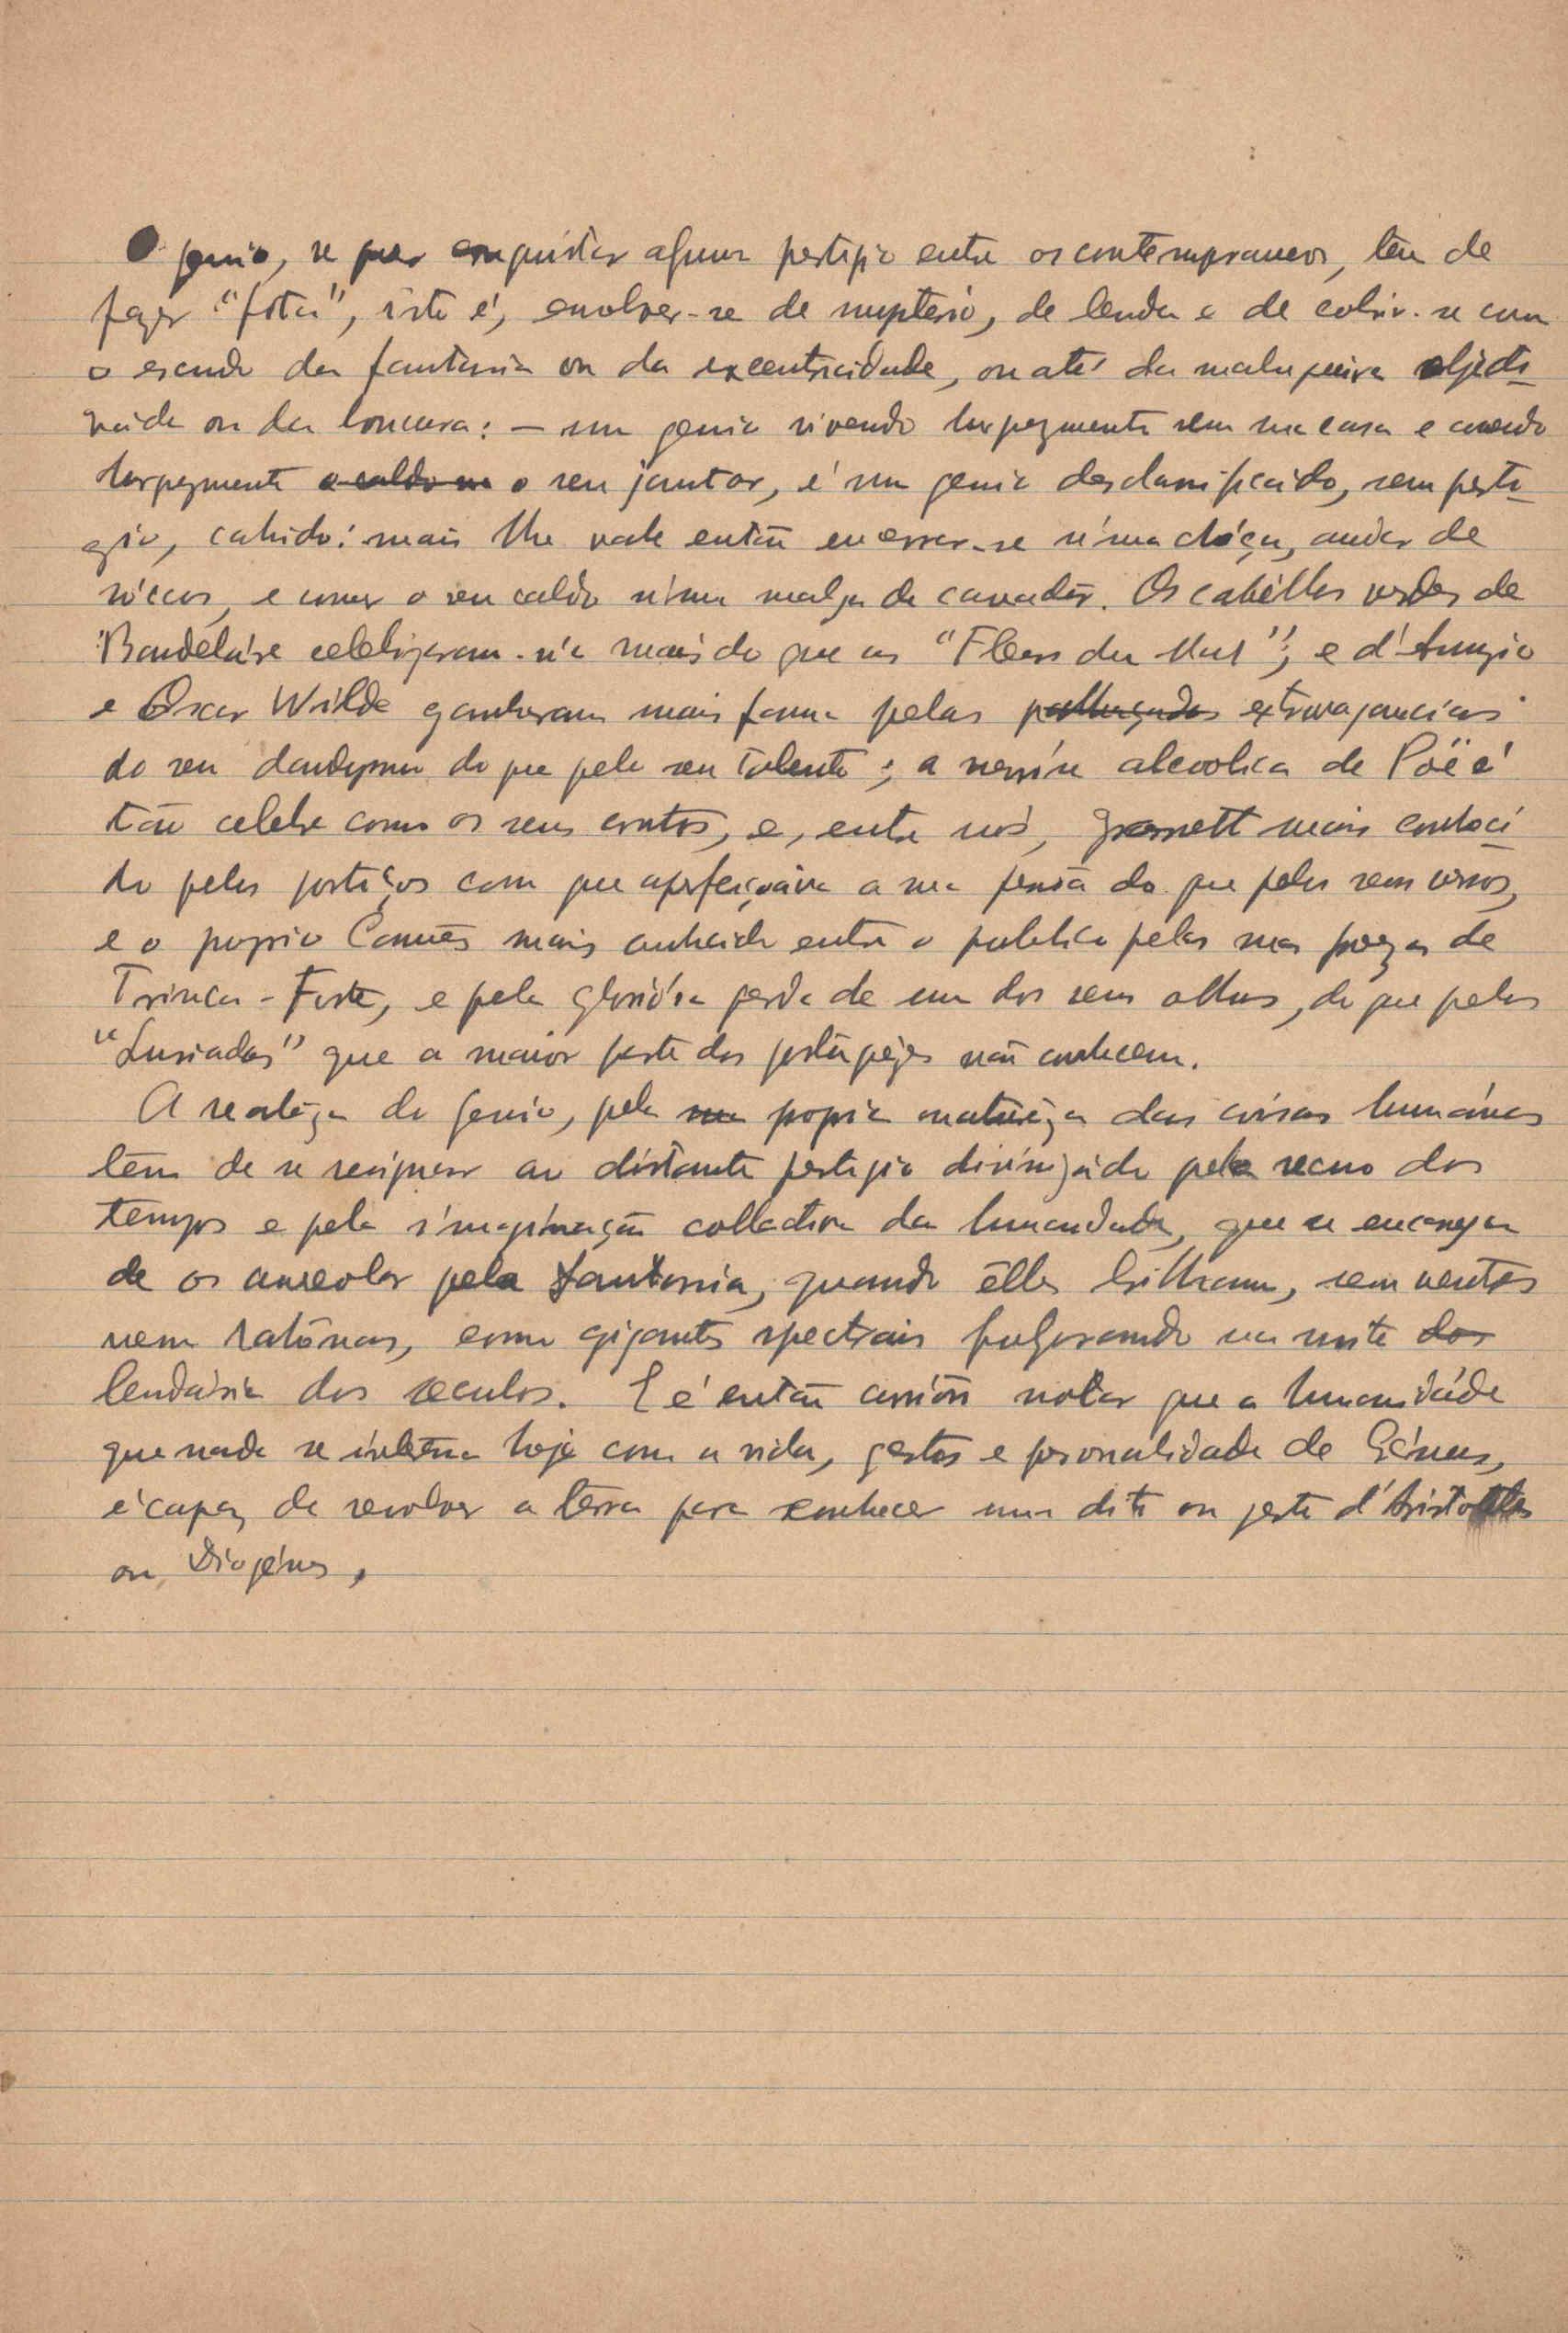 O genio, se quer conquistar algum prestigio entre os contemporaneos, têm de
fazer "fita", isto é, envolver-se de mysterio, de lenda e de cobrir-se com
o escudo da fantasia ou da excentricidade, ou até da maluqueira objecti-
vada ou da loucura: – um genio vivendo burguezmente sem sua casa e comendo
burguezmente o seu jantar, é um genio desclassificado, sem presti-
gio, cahido: mais lhe vale então encerrar-se n'uma chóça, andar de
sóccos, e comer o seu caldo n'uma malga de cavadôr. Os cabêllos verdes de
Baudelaire celebrizaram-n'o mais do que as "Fleurs du Mal"; e d'Anunzio
e Oscar Wilde ganharam mais fama pelas extravagancias
do seu dandysmo do que pelo seu talento; a alcoolica de Pöe é
tão celebre como os seus contos, e, entre nós, mais conheci-
do pelos postiços com que aperfeiçoava a sua do que pelos seus versos,
e o proprio Camões mais conhecido entre o publico pelas suas proezas de
Trinca-Fortes, e pela gloriósa perda de um dos seus olhos, do que pelos
"Lusiadas" que a maior parte dos portuguêzes não conhecem.
A realêza do Genio, pela propria naturêza das coisas humânas
têm de se ao distante prestigio divinizádo pelo recuo dos
tempos e pela imaginação collectiva da humanidade, que se encarrega
de os aureolar pela fantasia, quando êlles brilham, sem ventres
nem ratônas, como gigantes spectrais fulgurando na noite
lendária dos seculos. E é então curiôso notar que a humanidáde
que nada se intéressa hoje com a vida, gestos e personalidade de Génios,
é capaz de revolver a terra para conhecer um dito ou gesto d'Aristoteles
ou Diogénes.